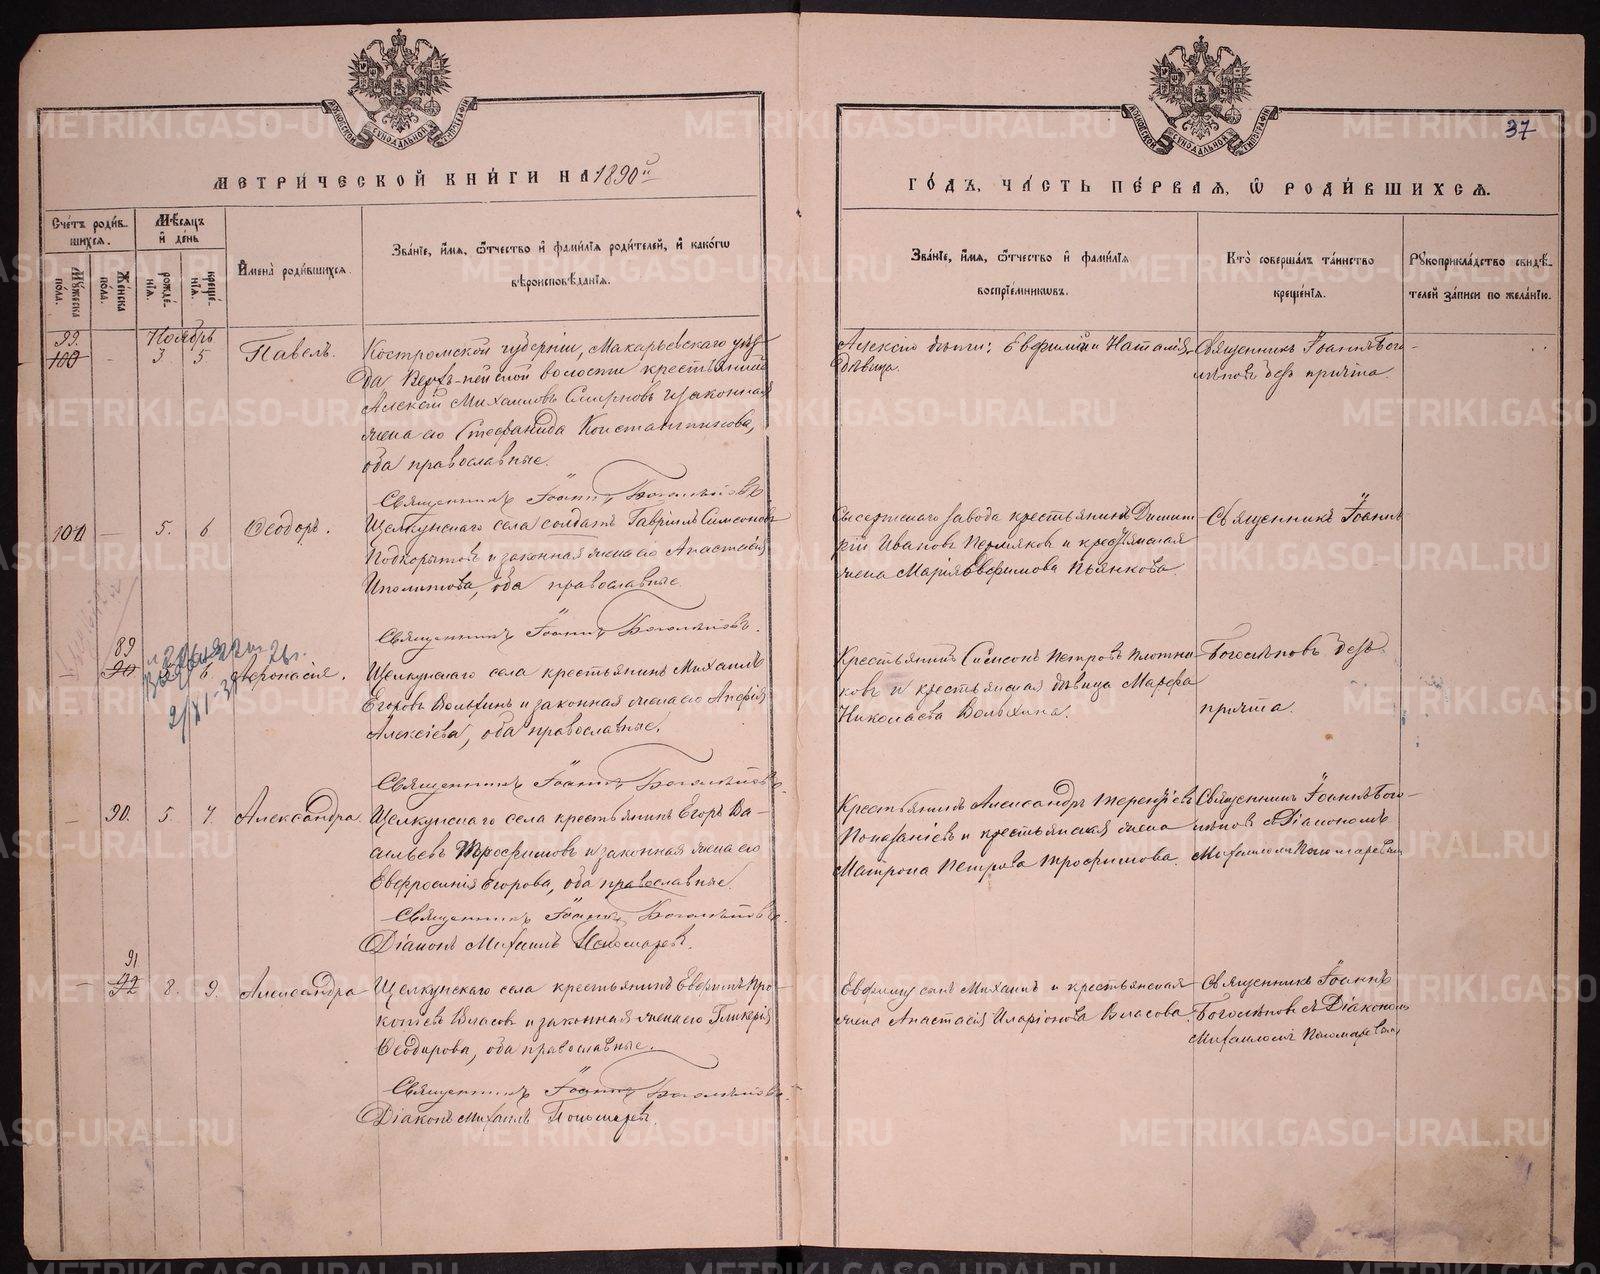 ЛУКОВСКОЙ СѴНОДАЛЬНОЙ ТИПОГРАФІИ
МЕТРИЧЕСКОЙ КНИГИ НА 1890й
Счетъ родив-
шихся.
Мѣсяцъ
и день
Мужеска
пола.
Женска
пола.
рожде-
нія.
креще-
нія.
Имена родившихся.
Званіе, имя, отчество и фамилія родителей, и какого
вѣроисповѣданія.
99. Ноябрь
100 - 3 5 Павелъ.
Костромской губерніи, Макарьевскаго уѣз-
да волости крестьянинъ
Алексѣй Михаиловъ Смирновъ и законная
жена его Стефанида Константинова,
оба православные.
Священникъ Іоаннъ Боголѣповъ
100 - 5. 6 Ѳеодоръ.
Щелкунскаго села солдатъ Гавриилъ Симеоновъ
Подкорытовъ и законная жена его Анастасія
Иполитова, оба православные.
Священникъ Іоаннъ Боголѣповъ.
89
- 90 6
Щелкунскаго села крестьянинъ Михаилъ
Егоровъ Волохинъ и законная жена его
Алексіева, оба православные.
Священникъ Іоаннъ Боголѣповъ.
- 90. 5. 7. Александра.
Щелкунскаго села крестьянинъ Егоръ Ва-
сильевъ Трофимовъ и законная жена его
Евфросинія Егорова, оба православные.
Священникъ Іоаннъ Боголѣповъ.
Діаконъ Михаилъ Пономаревъ.
91
- 92 8. 9. Александра
Щелкунскаго села крестьянинъ Евфимъ Про-
копіевъ Власовъ и законная жена его Гликерія
Ѳеодорова, оба православные.
Священникъ Іоаннъ Боголѣповъ.
Діаконъ Михаилъ Пономаревъ.
ЛУКОВСКОЙ СѴНОДАЛЬНОЙ ТИПОГРАФІИ
37
ГОДЪ, ЧАСТЬ ПЕРВАЯ, Ѡ РОДИВШИХСЯ.
Званіе, имя, отчество и фамилія
воспріемниковъ.
Кто совершалъ таинство
крещенія.
Рукоприкладство свидѣ-
телей записи по желанію.
Алексія дѣти: Евфимій и Наталія
дѣвица.
Священникъ Іоаннъ Бого-
лѣповъ безъ причта.
Сысертскаго завода крестьянинъ Димит-
рій Ивановъ Пермяковъ и крестьянская
жена Марія Евфимова Пьянкова.
Священникъ Іоаннъ
Крестьянинъ Симеонъ Петровъ Плотни-
ковъ и крестьянская дѣвица Марфа
Николаева Волохина.
Боголѣповъ безъ
причта.
Крестьянинъ Александръ Терентіевъ
и крестьянская жена
Матрона Петрова Трофимова.
Священникъ Іоаннъ Бого-
лѣповъ съ Діакономъ
Михаиломъ Пономаревымъ
Евфиміи сынъ Михаилъ и крестьянская
жена Анастасія Иларіонова Власова.
Священникъ Іоаннъ
Боголѣповъ съ Діакономъ
Михаиломъ Пономаревымъ
METRIKI.GASO-URAL.RU